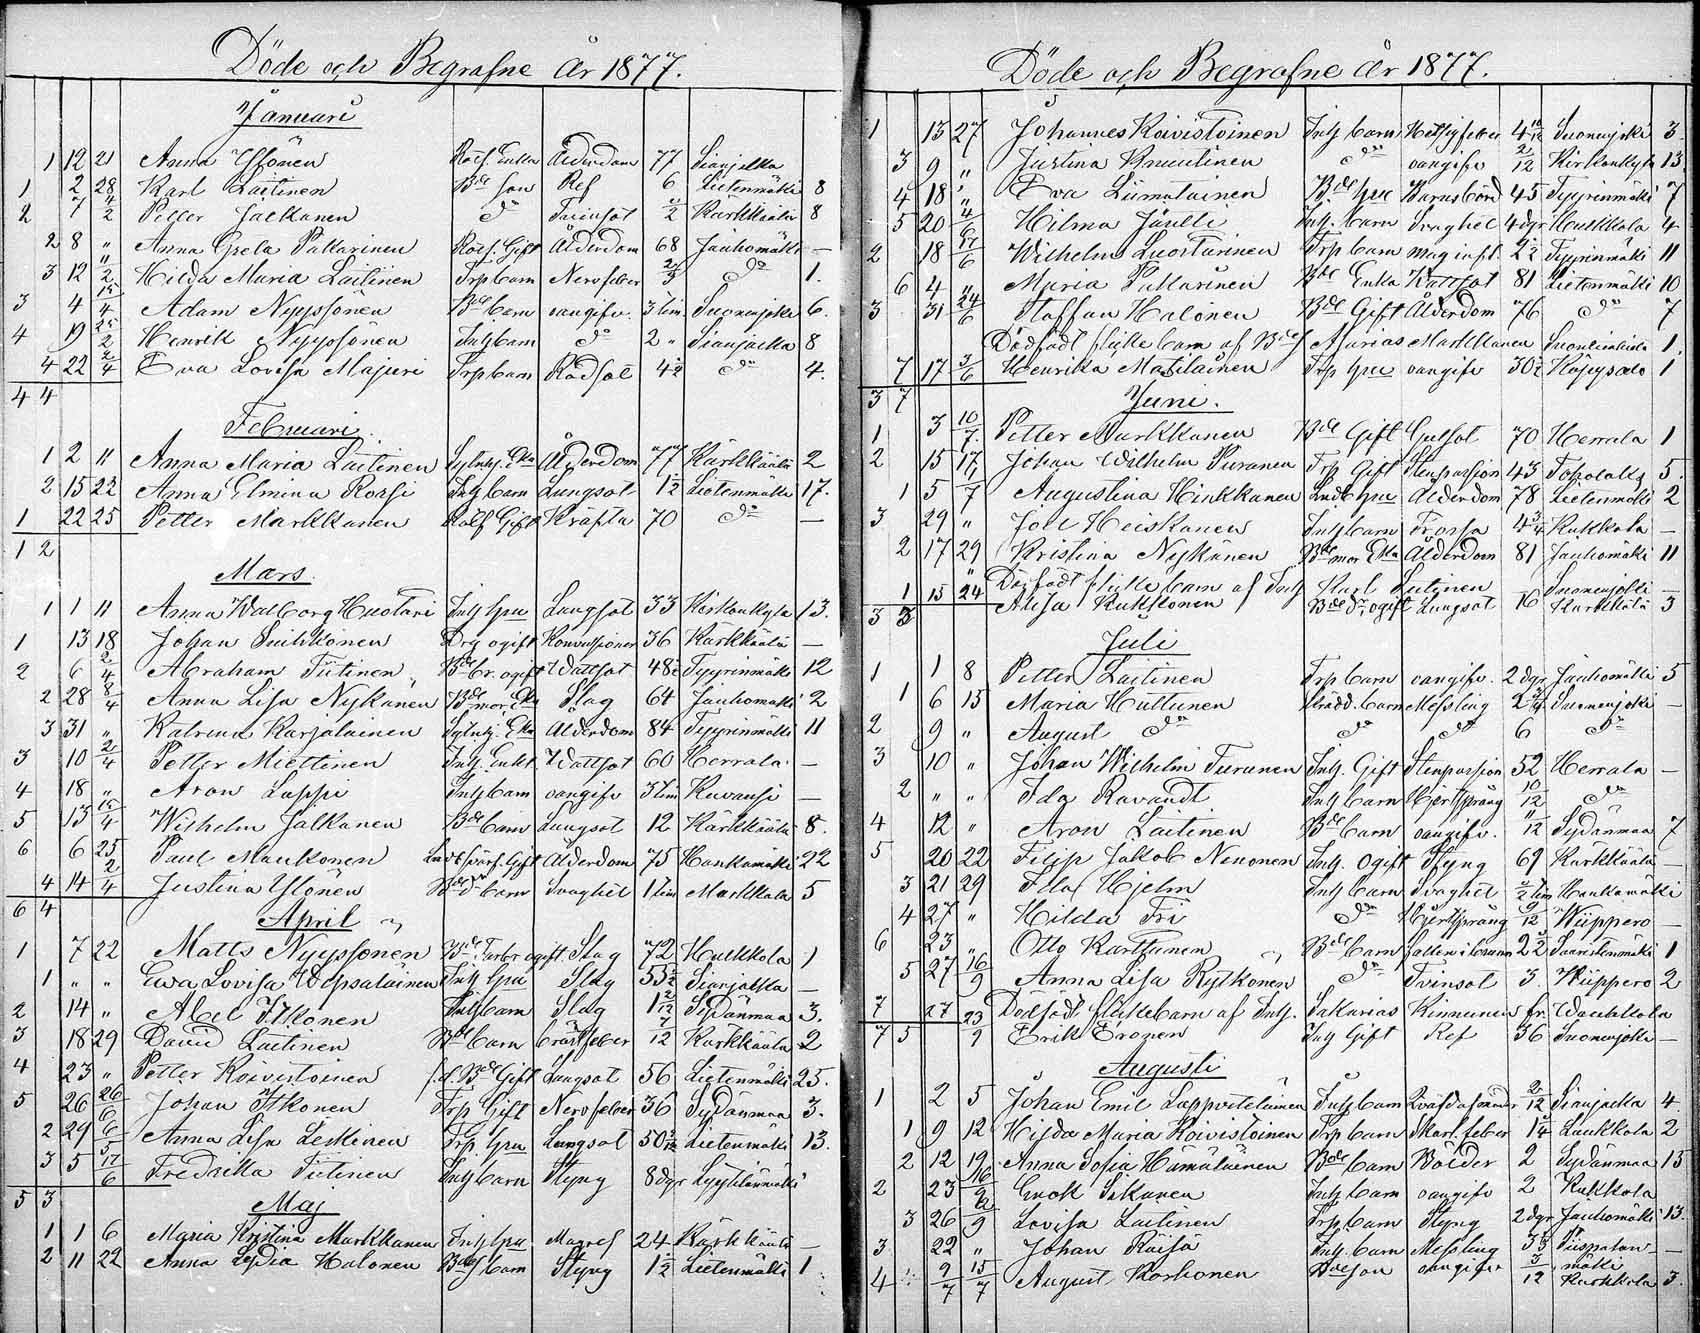 Döde och Begrafne År 1877.
Januari
1 12 21 Anna Ylönen Rotf. Enka Ålderdom 77 Sianjalka
1 2 28 Karl Laitinen Bde son Ref 6 Lietenmäki 8
2 7 4/2 Petter Jalkanen do 1/2 Kärkkäälä 8
2 8 " Anna Greta Pakarinen Rotf. Gift Ålderdom 68 Jauhomäki —
3 12 11/2 Hilda Maria Laitinen Trp barn Nervfeber 2/3 do 1.
3 4 15/4 Adam Nyyssönen Bde barn oangifv. 3 tim. Suonenjoki 6.
4 19 25/2 Henrik Nyyssönen Inh barn do 2 " Sianjalka 8
4 22 2/4 Eva Lovisa Majuri Trp barn Rödsot 4 1/2 do 4.
4 4
Februari
1 2 11 Anna Maria Laitinen Sytnhj. Eka Ålderdom 77 Kärkkäälä 2
2 15 22 Anna Elmina Rossi Inh barn Lungsot 1 1/2 Lietenmäki 17.
1 22 25 Petter Markkanen Rotf Gift Kräfta 70 do —
1 2
Mars
1 1 11 Anna Walborg Huotari Inh hu Lungsot 33 Kirkonkylä 13.
1 13 18 Johan Suihkonen Drg ogift Konvulsioner 36 Kärkkäälä —
2 6 2/4 Abraham Tiitinen Bde br. ogift Wattsot 48 1/2 Tyyrinmäki 12
2 28 8/4 Anna Lisa Nykänen Bde mor Eka Slag 64 Jauhomäki 2
3 31 " Katrina Karjalainen Sytnhj. Eka Ålderdom 84 Tyyrinmäki 11
3 10 2/4 Petter Miettinen Inh. Enkl. Wattsot 60 Herrala —
4 18 " Aron Lappi Inh barn oangifv 3 tim Kuvansi —
5 13 15/4 Wilhelm Jalkanen Bde barn Lungsot 12 Kärkkäälä 8.
6 6 25 Paul Maukonen Gift Ålderdom 75 Hankamäki 22
4 14 2/4 Justina Ylönen Bde barn Svaghet 1 tim Markkala 5
6 4
April
1 7 22 Matts Nyyssönen Bde Farbr ogift Slag 72 Hulkkola 1
1 " " Ewa Lovisa Wepsäläinen Inh hu Slag 53 1/2 Sianjalka —
2 14 " Abel Itkonen Inh barn Slag 1 2/12 Sydänmaa 3.
3 18 29 David Laitinen Bde barn Bröstfeber 7/12 Kärkkäälä 2
4 23 " Petter Koivistoinen f.d. Bde Gift Lungsot 56 Lietenmäki 25.
5 26 26/6 Johan Itkonen Trp Gift Nervfeber 36 Sydänmaa 3.
2 29 6/5 Anna Lisa Leskinen Trp. hu Lungsot 50 Lietenmäki 13.
3 5 17/6 Fredrikka Tiitinen Inh barn Styng 8 dgr Lyytilänmäki
5 3
Maj
1 1 6 Maria Kristina Markkanen Inh hu Magref 24 Kärkkäälä —
2 11 22 Anna Lydia Halonen Bdes barn Styng 1 1/2 Lietenmäki 1
Döde och Begrafne År 1877.
1 13 27 Johannes Koivistoinen Inh barn Hetsigfeber 4 10/12 Suonenjoki 3.
3 9 " Justina Knuutinen do oangifv 2/12 Kirkonkylä 13.
4 18 " Eva Liimatainen Bde hu Barnsbörd 45 Tyyrinmäki 7
5 20 4/6 Hilma Jäntti Inh. barn Svaghet 4 dgr Hulkkola 4
2 18 17/6 Wilhelm Luostarinen Trp barn maginfl. 2 1/2 Tyyrinmäki 11
6 4 " Maria Pakarinen Bde Enka Wattsot 81 Lietenmäki 10
3 31 24/6 Staffan Halonen Bde Gift Ålderdom 76 do 7
Dödfödt flicke barn af Bdes Marias Markkanen 1.
7 17 3/6 Henrika Matilainen Trp hu oangifv 30 1/2 Köpysalo 1
3 7
Juni.
1 3 10/7 Petter Markkanen Bde Gift Gulsot 70 Herrala 1
2 15 17 Johan Wilhelm Puranen Trp Gift Stenpassion 43 Toholahti 5.
1 5 /7 Augustina Hinkkanen hu Ålderdom 78 Lietenmäki 2
3 29 " Joel Heiskanen Inh barn Trossa 4 3/4 Kukkola —
2 17 29 Kristina Nykänen Bde mor Eka Ålderdom 81 Jauhomäki 11
" Dödfödt flicke barn af Inh Karl Lutinen Suonenjoki —
1 15 24 Alisa Kukkonen Bde dr. ogift Lungsot 16 Kärkkälä 3
3 3
Juli
1 1 8 Petter Laitinen Trp barn oangifv. 2 dgr Jauhomäki 5
1 6 15 Maria Huttunen Skrädd. barn Messling 2 3/4 Suonenjoki —
2 9 " August do do do 6 do
3 10 " Johan Wilhelm Turunen Inh. Gift Stenpassion 52 Herrala —
2 " " Ida Ravandt Inh barn Hjertsprång 10/12 do
4 12 " Aron Laitinen Bde barn oangifv. 11/12 Sydänmaa 7
5 20 22 Filip Jakob Nenonen Inh. Ogift Styng 69 Kärkkäälä —
3 21 29 Ida Hjelm Inh barn Svaghet 1/2 tim Hankamäki
4 27 " Hilda Fri do Hjertsprång 9/12 Wiippero —
6 23 " Otto Karttunen Bde barn fallen i brunn 2 1/2 Saaristenmäki 1
5 27 16/9 Anna Lisa Rytkönen do Tvinsot 3 Wiippero 2
7 27 Dödfödt flickebarn af Inh. Sakarias Kinnunen fr. Wauhkola
7 5 23/9 Erik Eronen Inh Gift Ref 36 Suonenjoki —
Augusti
1 2 5 Johan Emil Lappveteläinen Inh barn 2/12 Sianjalka 4.
1 9 12 Hilda Maria Koivistoinen Trp barn Skarl. feber 1 1/4 Laukkala 2
2 12 19 Anna Sofia Hämäläinen Bde barn Bölder 2 Sydänmaa 15
2 23 16/9 Enok Sikanen Inh barn oangifv 2 Kukkola
3 26 2/9 Lovisa Laitinen Trp barn Styng 2 dgr Jauhomäki 13.
3 22 " Johan Räisä Inh. barn Messling 3 3/4 Piispalanmäki —
4 9/7 15/7 August Korhonen Bde son oangifv 3/12 Kukkola 3.